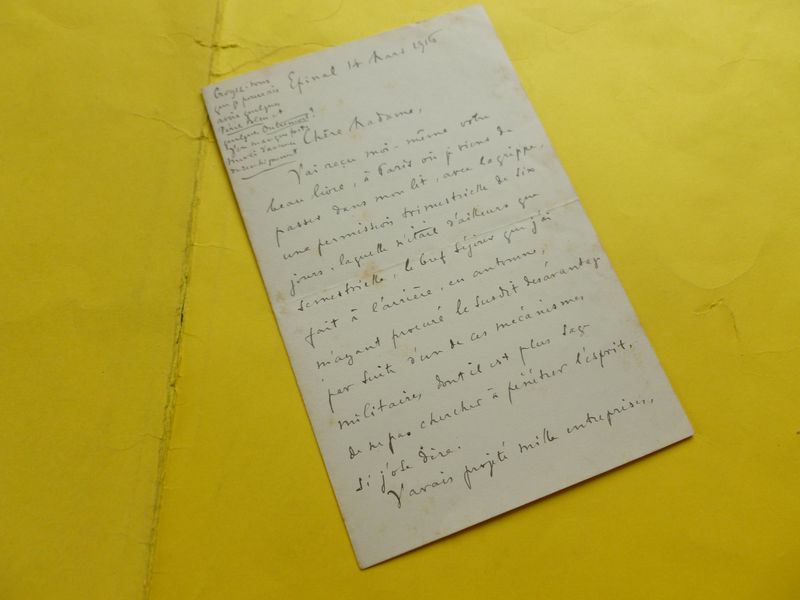 Croyez-vous
que je pourrais
avoir quelque
quelque
Epinal 14 Mars 1916
Chère Madame,
J'ai reçu moi-même votre
beau livre, à Paris où je viens de
passer dans mon lit, avec la grippe,
une permission trimestrielle de six
jours. laquelle n'était d'ailleurs que
semestrielle, le bref séjour que j'ai
fait à l'arrière, en automne,
m'ayant procuré le susdit désavantage
par suite d'un de ces mécanismes
militaires, dont il est plus sage
de ne pas chercher à pénétrer l'esprit,
si j'ose dire.
J'avais projeté mille entreprises,